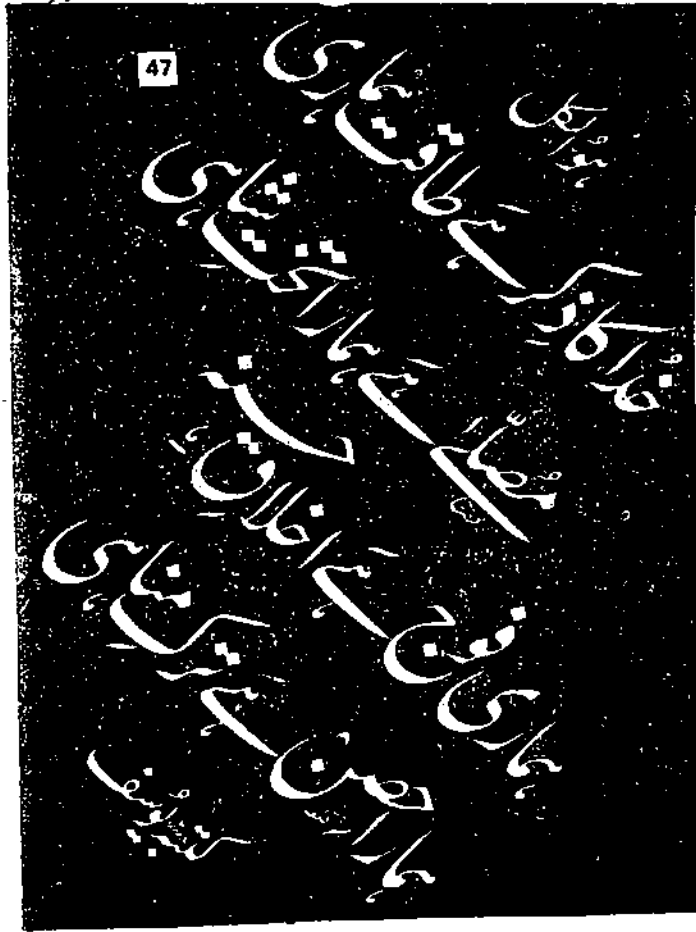 47
ہو الکل
خدا کا ذکر ہے طاقت ہماری
مُصلّے ہے ہمارا تختِ شاہی
ہماری فوج ہے اخلاقِ حسنہ
ہمارا حصن ہے ترکِ مناہی
کتبہ یوسف